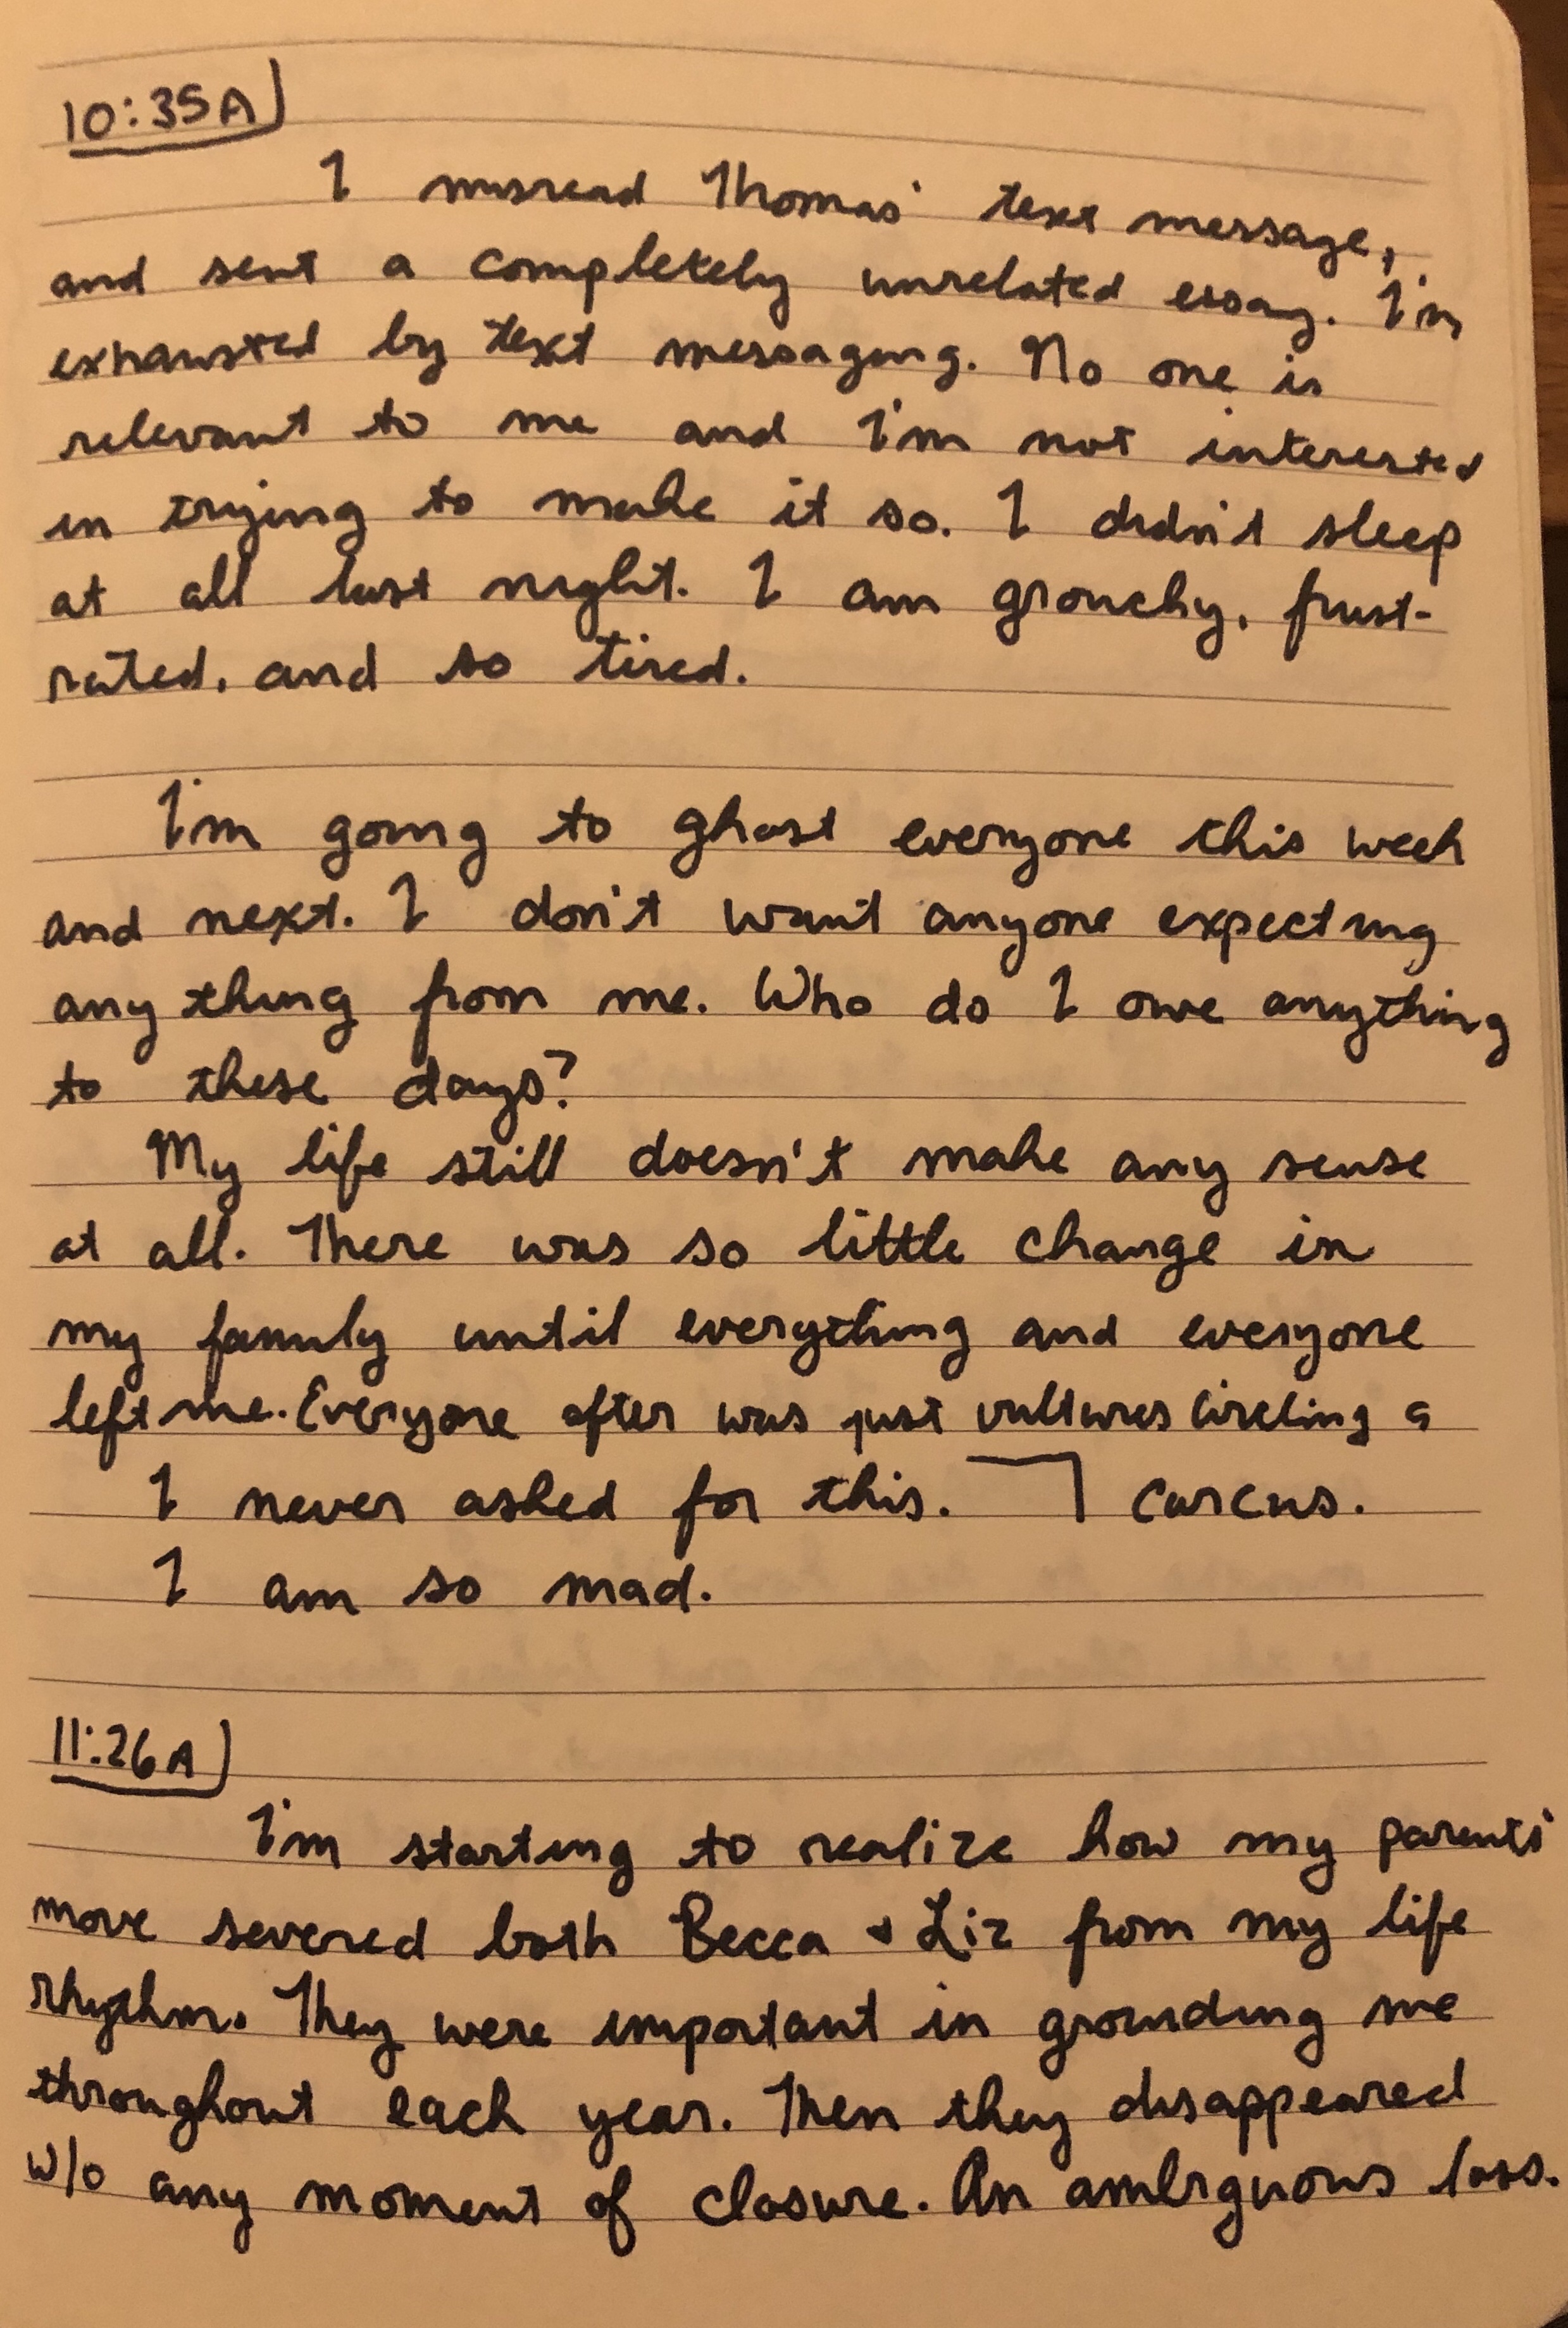 10:35A
I misread Thomas' text message,
and sent a completely unrelated essay. I'm
exhausted by text messaging. No one is
relevant to me and I'm not interested
in trying to make it so. I didn't sleep
at all last night. I am grouchy, frust-
rated, and so tired.
I'm going to ghost everyone this week
and next. I don't want anyone expecting
anything from me. Who do I owe anything
to these days?
My life still doesn't make any sense
at all. There was so little change in
my family until everything and everyone
left me. Everyone after was just vultures circling a
carcus.
I never asked for this.
I am so mad.
11:26A
I'm starting to realize how my parents'
move severed both Becca + Liz from my life
rhythm. They were important in grounding me
throughout each year. Then they disappeared
w/o any moment of closure. An ambiguous loss.